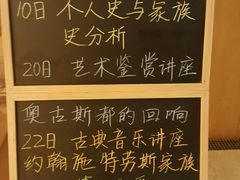 10日 个人史与家族
史分析
20日 艺术鉴赏讲座
奥古斯都的回响
22日 古典音乐讲座
约翰施特劳斯家族